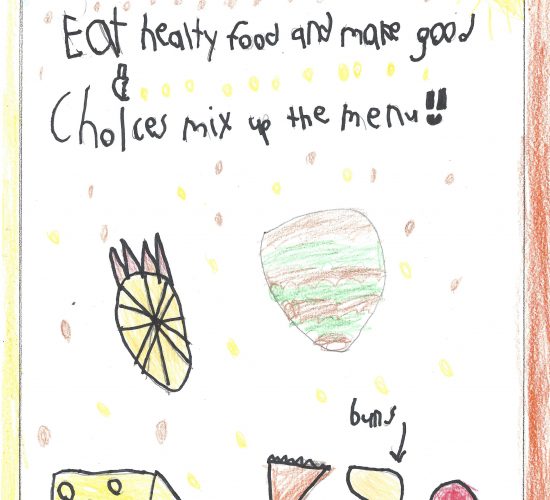 Eat healty food and make good
Choices mix up the menu!!
buns